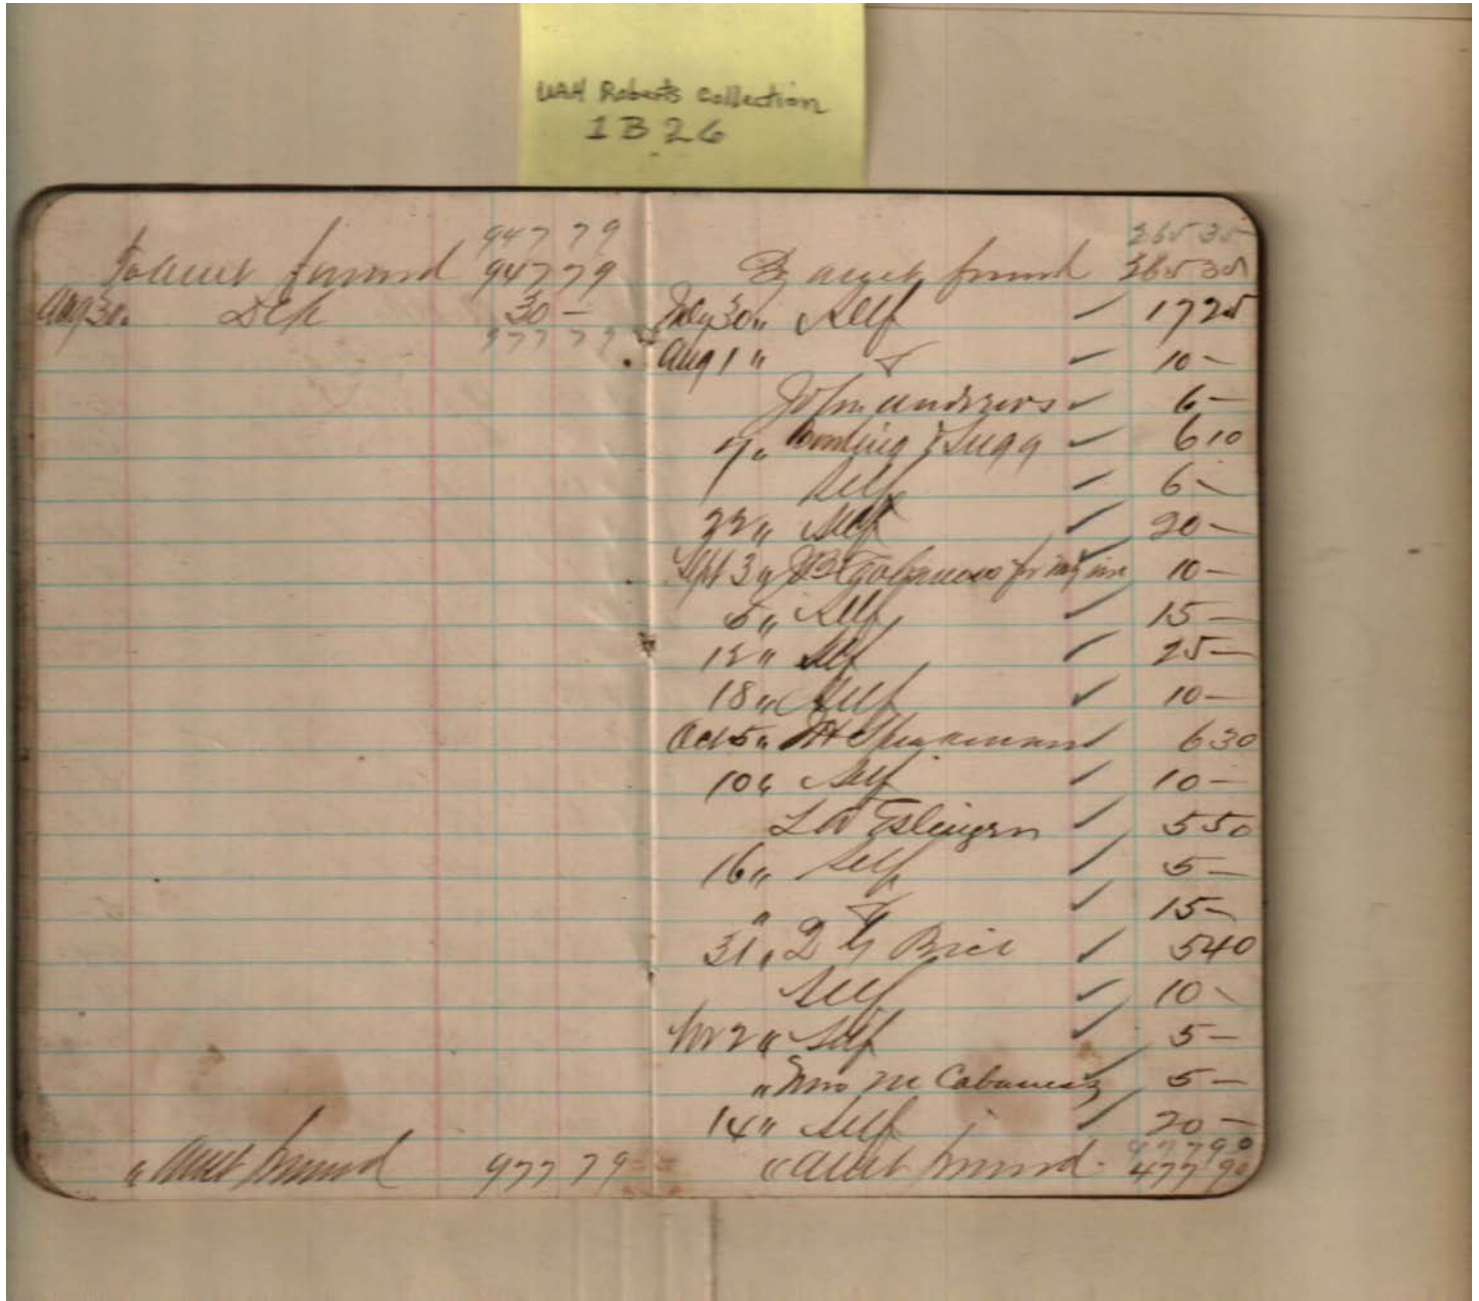 UAH Roberts Collection
1B26
947 79
To amt forward 947 79
Aug 30 " Dep 30 —
977 79
" amt forward 977 79
265 35
By amt forward 265 35
July 30 " Self ✓ 17 25
Aug 1 " ✓ 10 —
John Andrews ✓ 6 —
7 " & Sugg ✓ 6 10
Self ✓ 6 —
22 " Self ✓ 20 —
Sept 3 " ✓ 10 —
5 " Self ✓ 15 —
12 " Self ✓ 25 —
18 " Self ✓ 10 —
Oct 5 " 6 30
10 " Self ✓ 10 —
Eslinger ✓ 5 50
16 " Self ✓ 5 —
" ✓ 15 —
31 " Brice ✓ 5 40
Self ✓ 10 —
Nov 2 " Self ✓ 5 —
" Mrs M Cabaness ✓ 5 —
14 " Self ✓ 20 —
477 90
" amt forward. 477 90